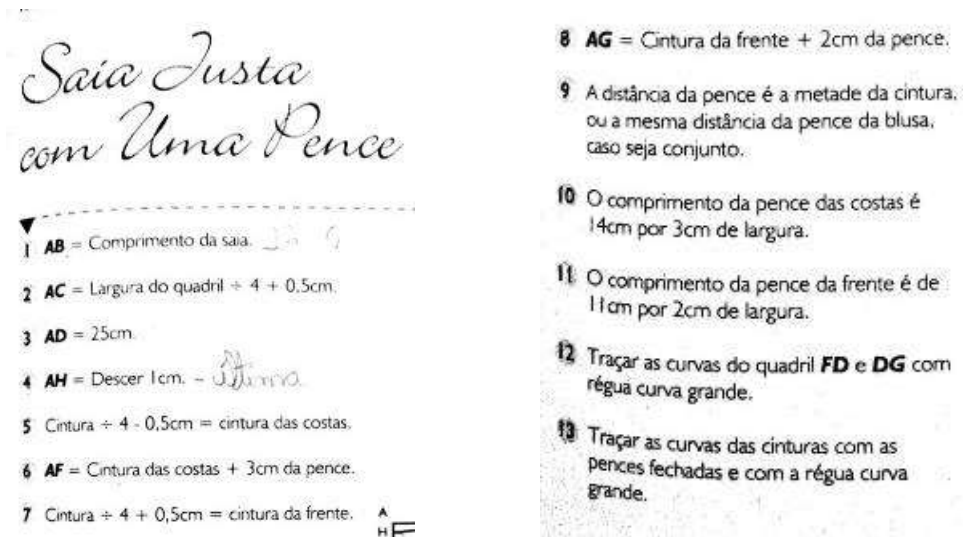 Saia Justa
com Uma Pence
1 AB = Comprimento da saia.
2 AC = Largura do quadril ÷ 4 + 0,5cm.
3 AD = 25cm.
4 AH = Descer 1cm. - última
5 Cintura ÷ 4 - 0,5cm = cintura das costas.
6 AF = Cintura das costas + 3cm da pence.
7 Cintura ÷ 4 + 0,5cm = cintura da frente.
A
H
8 AG = Cintura da frente + 2cm da pence.
9 A distância da pence é a metade da cintura,
ou a mesma distância da pence da blusa,
caso seja conjunto.
10 O comprimento da pence das costas é
14cm por 3cm de largura.
11 O comprimento da pence da frente é de
11cm por 2cm de largura.
12 Traçar as curvas do quadril FD e DG com
régua curva grande.
13 Traçar as curvas das cinturas com as
pences fechadas e com a régua curva
grande.